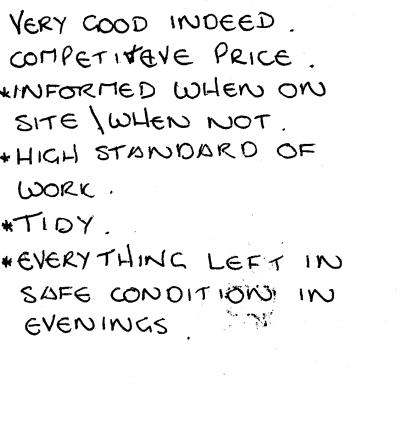 VERY GOOD INDEED.
COMPETITIVE PRICE.
*INFORMED WHEN ON
SITE \WHEN NOT.
*HIGH STANDARD OF
WORK.
*TIDY.
*EVERYTHING LEFT IN
SAFE CONDITION IN
EVENINGS.